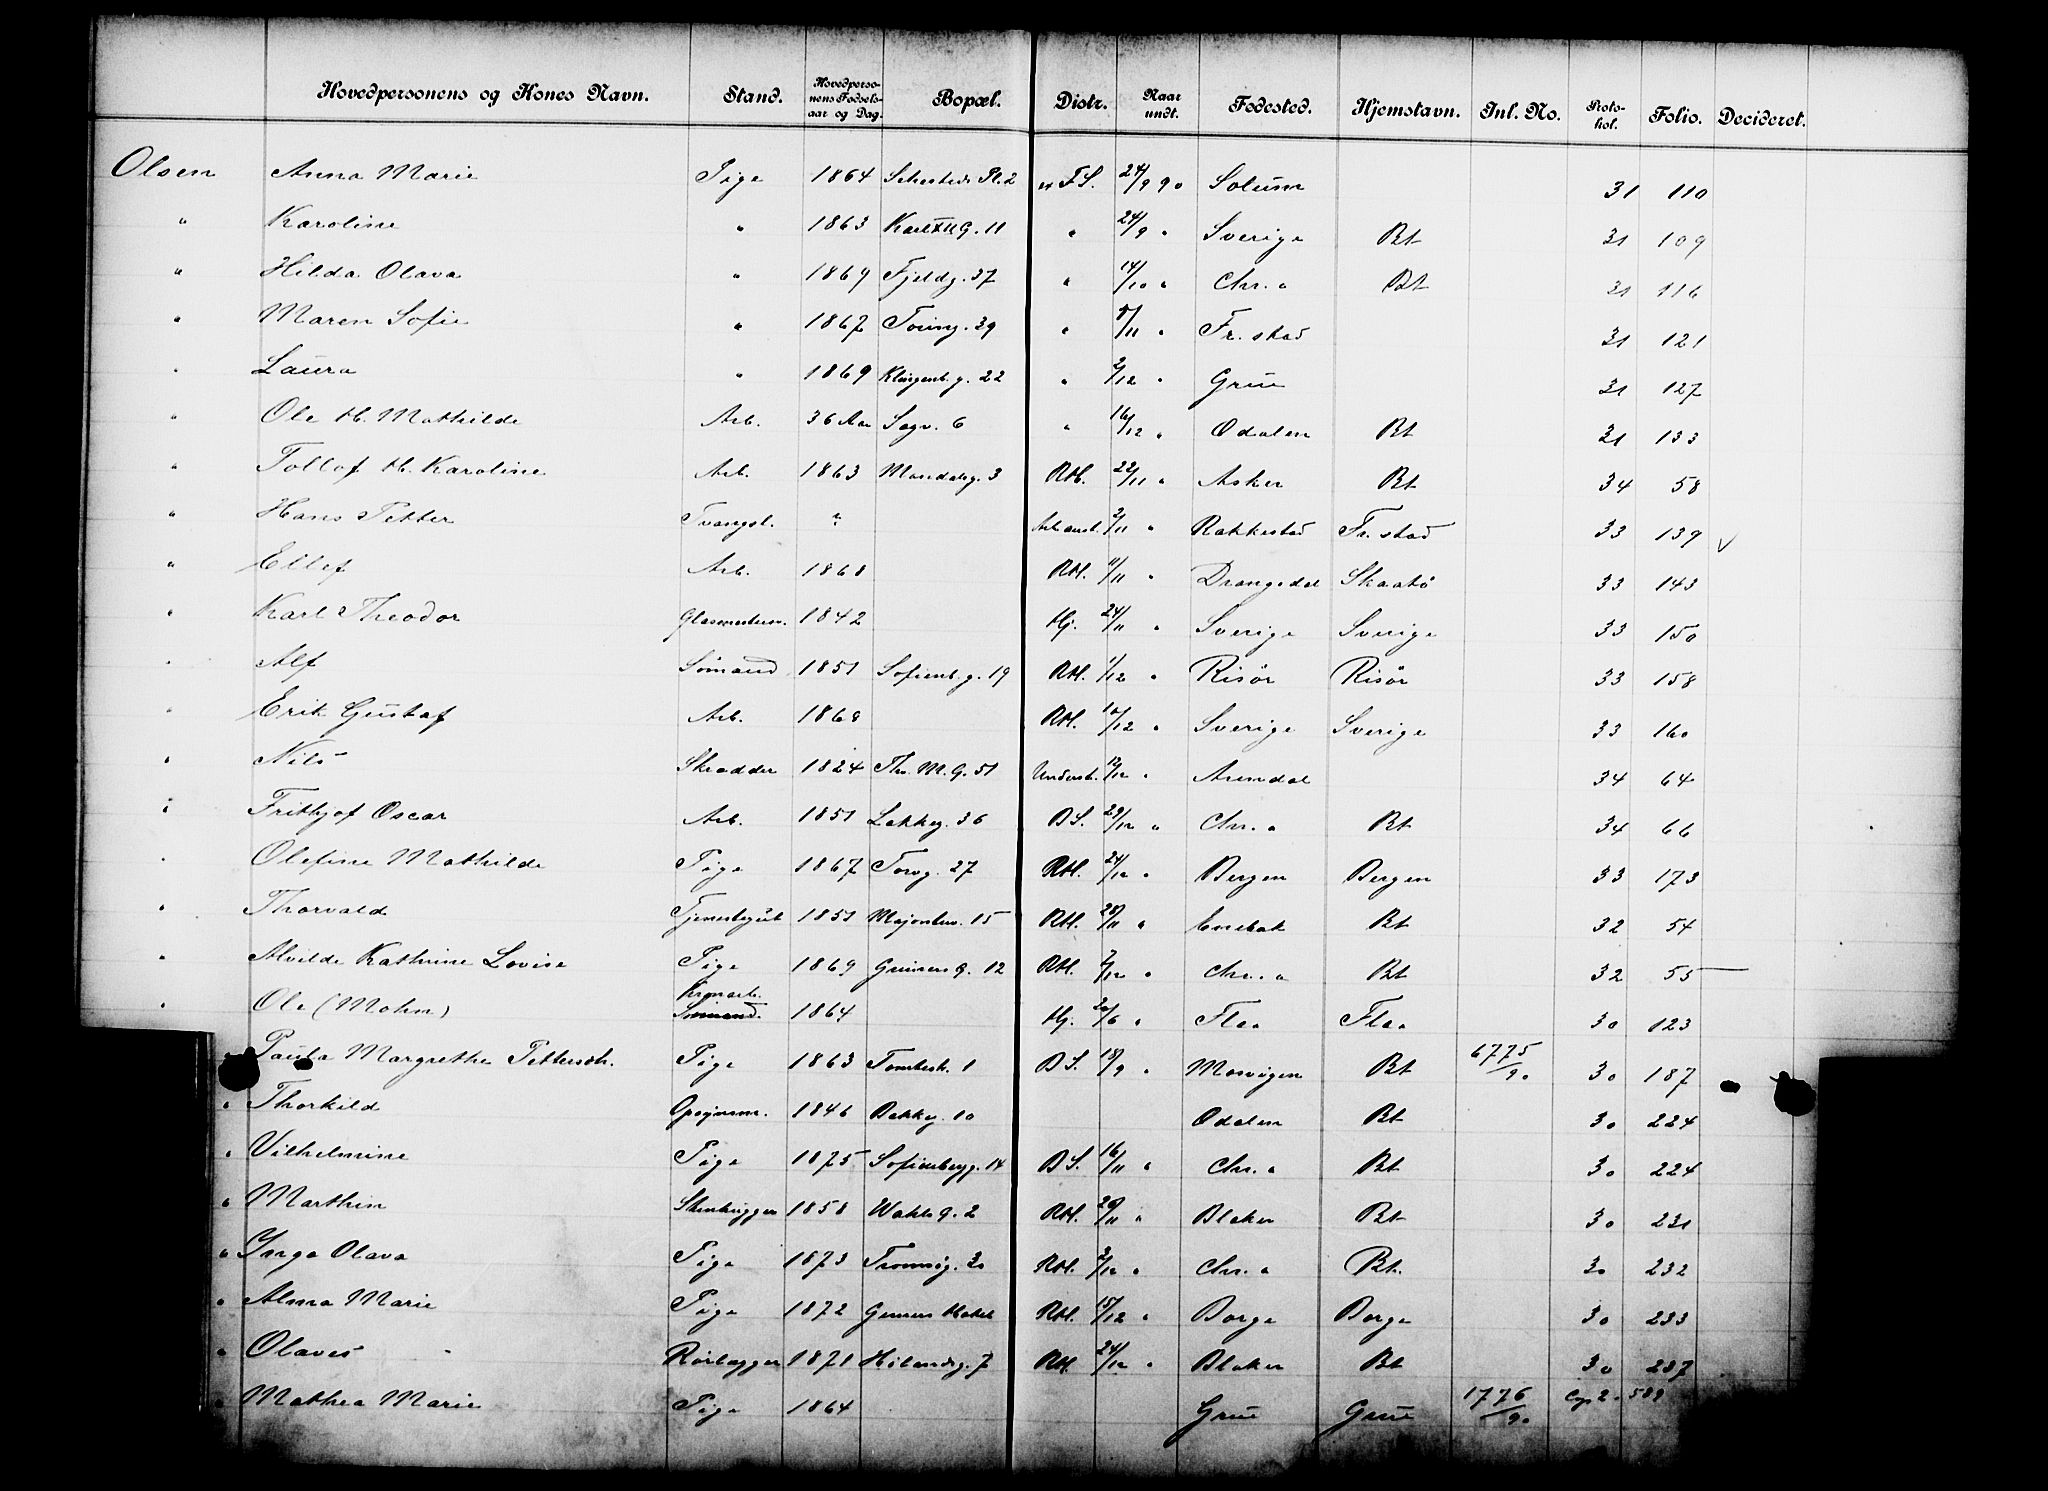 Hovedpersonens og Kones Navn. Stand. Hovedpersonens Fødselsaar og Dag. Bopæl. Distr. Naar undt. Fødested. Hjemstavn. Inl. No. Protokol. Folio. Decideret.
Olsen Anna Marie Pige 1864 Sehesteds Pl. 2 F.S. 24/9 90 Solum 31 110
" Karoline " 1863 Karl XII G. 11 " 24/9 " Sverige Bt 31 109
" Hilda Olava " 1869 Fjeldg. 37 " 14/10 " Chr.a Bt 31 116
" Maren Sofie " 1867 Toung. 39 " 5/11 " Fr.stad 31 121
" Laura " 1869 Klingenb.g. 22 " 2/12 " Grue 31 127
" Ole H. Mathilde Arb. 36 Aar Sagv. 6 " 16/12 " Odalen Bt 31 133
" Tollof H. Karoline Arb. 1863 Mandalsg. 3 RH. 22/11 " Asker Bt 34 58
" Hans Petter Tvangsl. ? Arb.anst. 2/11 " Rakkestad Fr.stad 33 139 v
" Ellef Arb. 1868 RH. 11/11 " Drangedal Skaatø 33 143
" Karl Theodor Glasmestersv. 1842 Hj. 24/11 " Sverige Sverige 33 150
" Alf Sømand 1851 Sofienb.g. 19 RH. 1/12 " Risør Risør 33 158
" Erik Gustaf Arb. 1868 RH. 10/12 " Sverige Sverige 33 160
" Nils Skrædder 1824 Th. M. G. 51 Underst. 12/12 " Arendal 34 64
" Frithjof Oscar Arb. 1851 Lakkeg. 36 B.S. 29/12 " Chr.a Bt 34 66
" Olefine Mathilde Pige 1867 Torvg. 27 RH. 24/12 " Bergen Bergen 33 173
" Thorvald Tjenestegut 1851 Majorstuv. 15 RH. 28/11 " Enebak Bt 32 54
" Alvilde Kathrine Lovise Pige 1869 Grüners G. 12 RH. 2/12 " Chr.a Bt 32 55
" Ole (Mohn) Sømand. 1864 Hj. 20/6 " Flaa Flaa 30 123
" Paula Margrethe Pettersdt. Pige 1863 Tomtest. 1 B.S. 18/9 " Mosvigen Bt 6775/90 30 187
" Thorkild Opsynsm. 1846 Bakkeg. 10 Odalen Bt 30 224
" Vilhelmine Pige 1875 Sofienbergg. 14 B.S. 16/11 " Chr.a Bt 30 224
" Marthin Stenhugger 1858 Wahls G. 2 RH. 28/11 " Blaker Bt 30 231
" Inga Olava Pige 1873 Tromsøg. 30 RH. 2/12 " Chr.a Bt. 30 232
" Alma Marie Pige 1872 Hotel RH. 15/12 " Borge Borge 30 233
" Olaves Rørlægger 1871 7 RH. 24/12 " Blaker Bt 30 237
" Mathea Marie Pige 1864 Grue Grue 1776/90 2 589